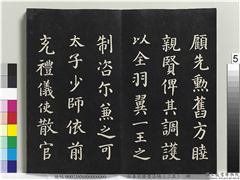 顧先勳舊方睦
親賢俾其調護
以全羽翼一王之
制咨尔兼之可
太子少師依前
充禮儀使散官
5